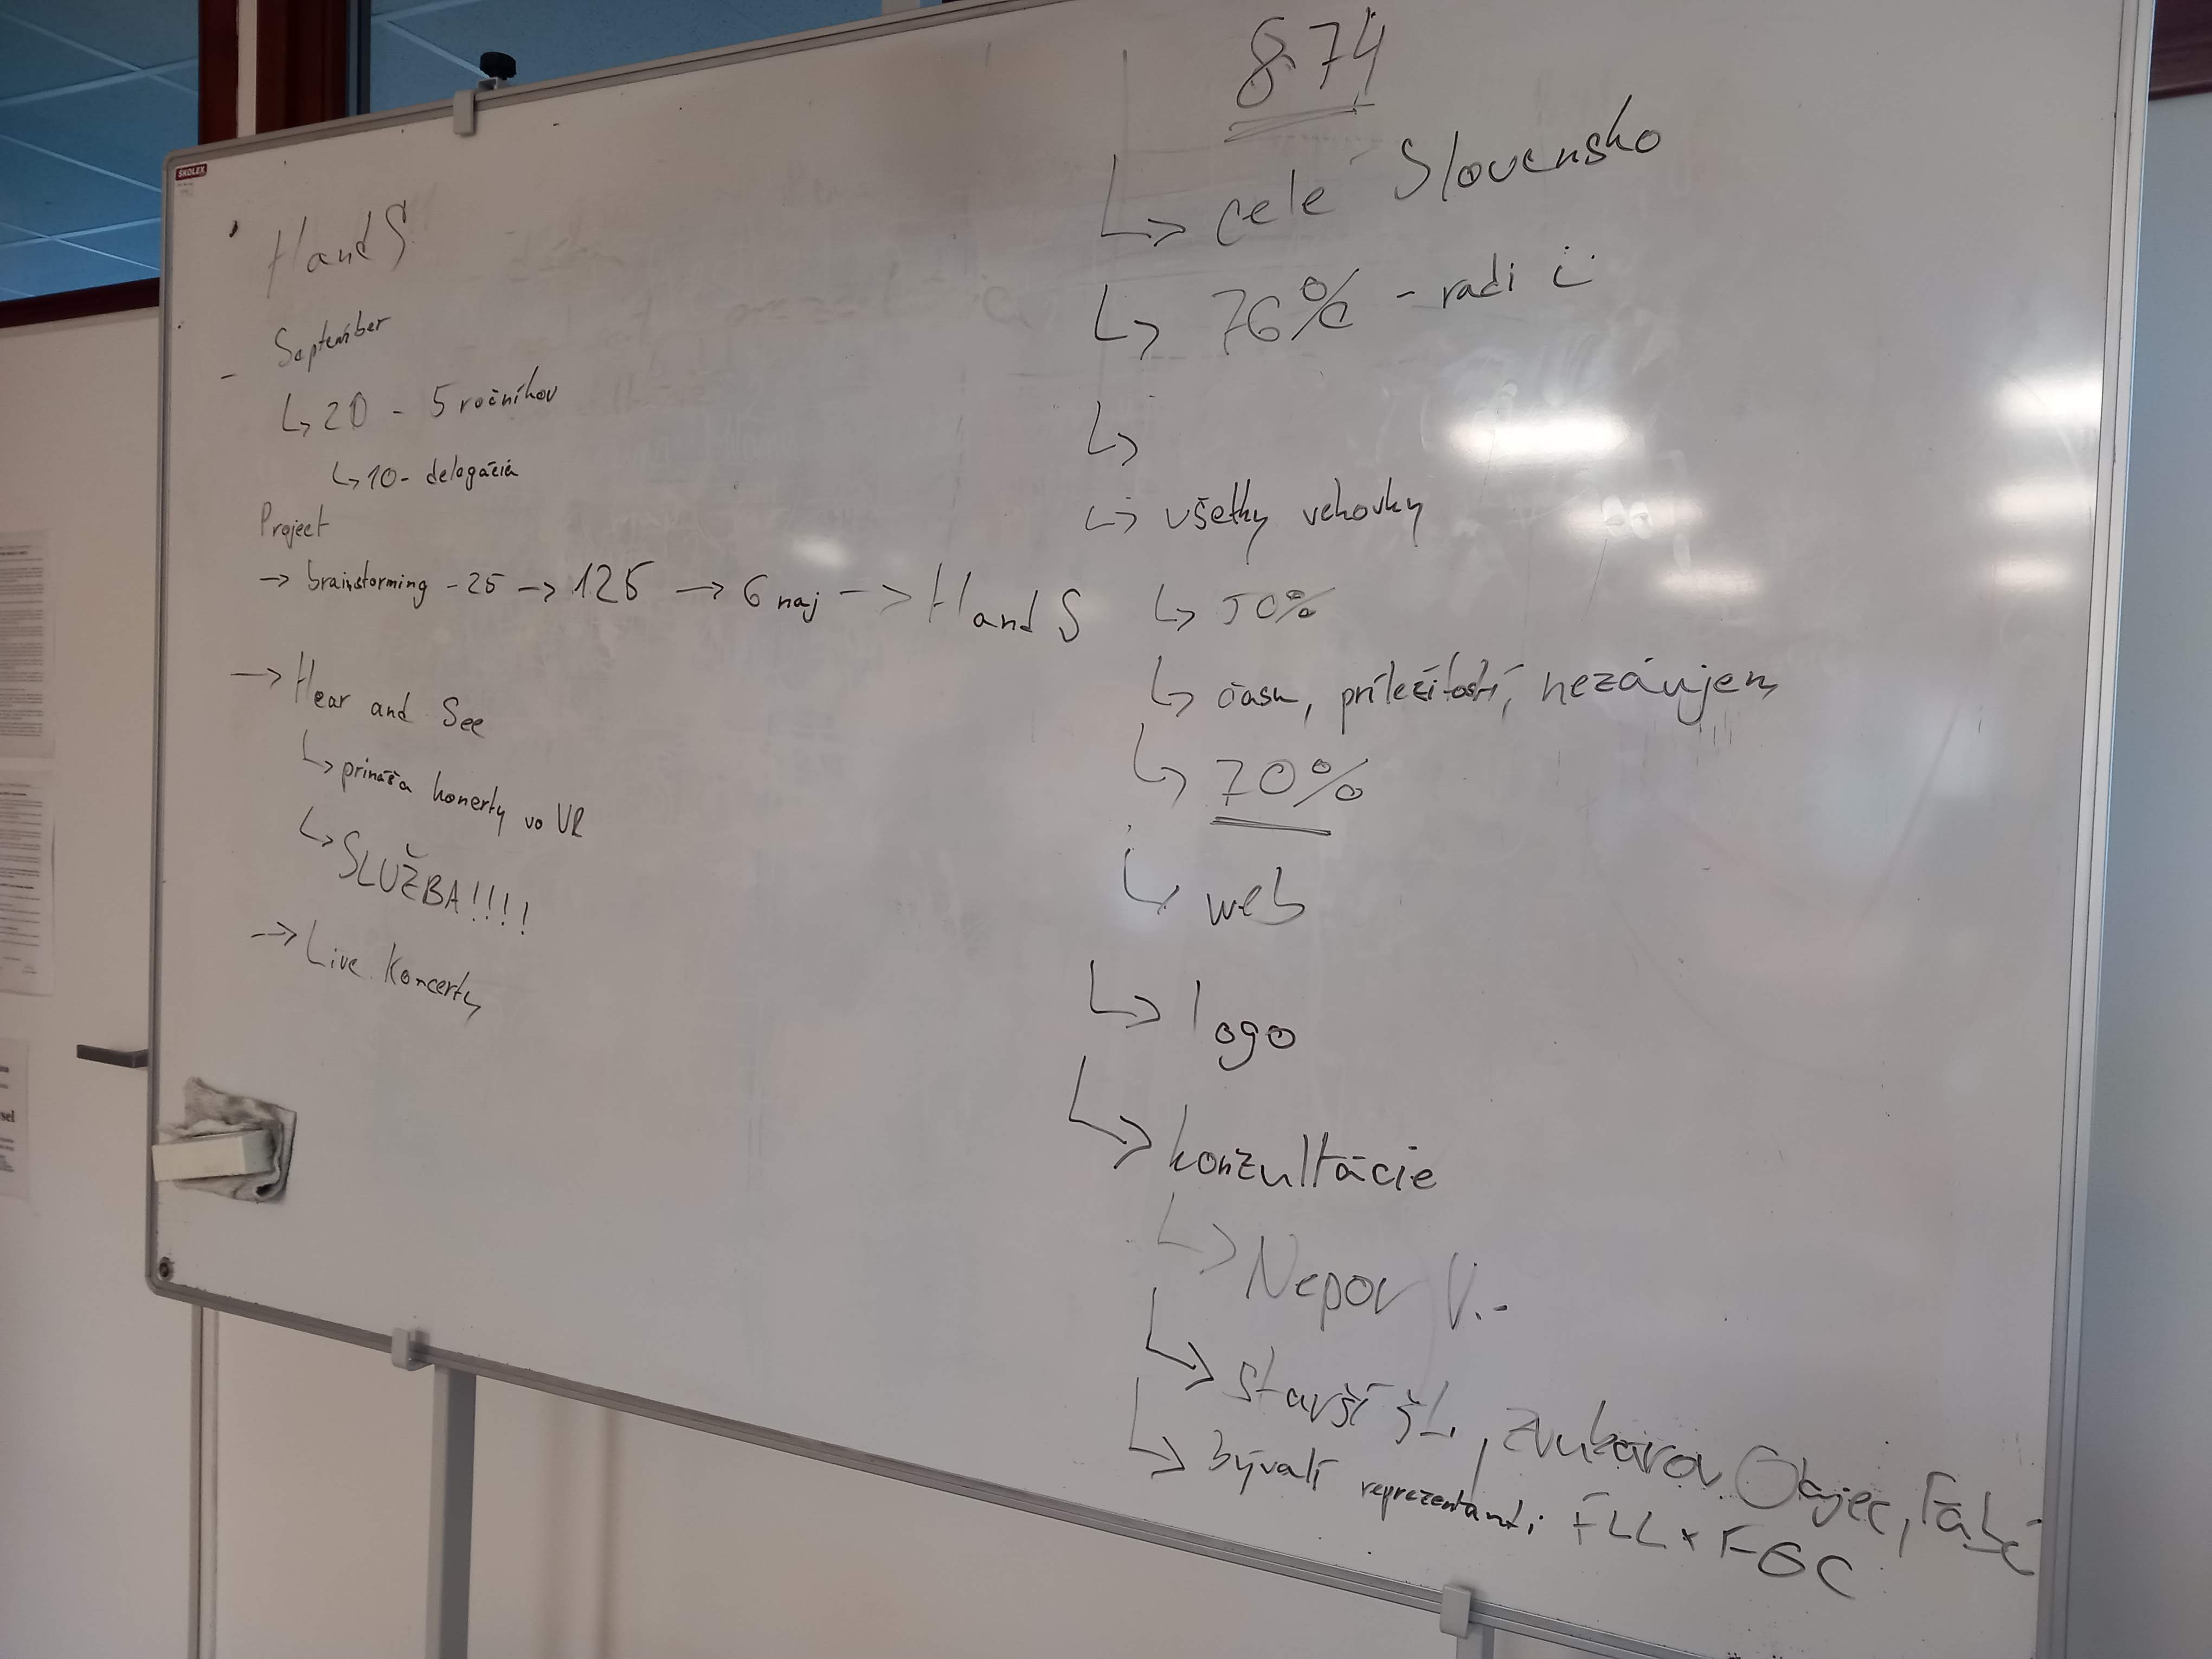 SKOLEX
HandS
September
- ↳ 20 - 5 ročníkov
↳ 10 - delegácia
Project
→ brainstorming - 25 → 125 → 6 naj → HandS
→ Hear and See
↳ prináša konerty vo VR
↳ SLUŽBA!!!!
→ Live Koncerty
874
↳ celé Slovensko
↳ 76% - radi
↳
↳ všetky vekovky
↳ 50%
↳ času, príležitostí, nezáujem
↳ 70%
↳ web
↳ logo
↳ konzultácie
↳ Nepor V.-
↳ starší čl., zvukárov
↳ bývalí reprezentanti FLL x FGC